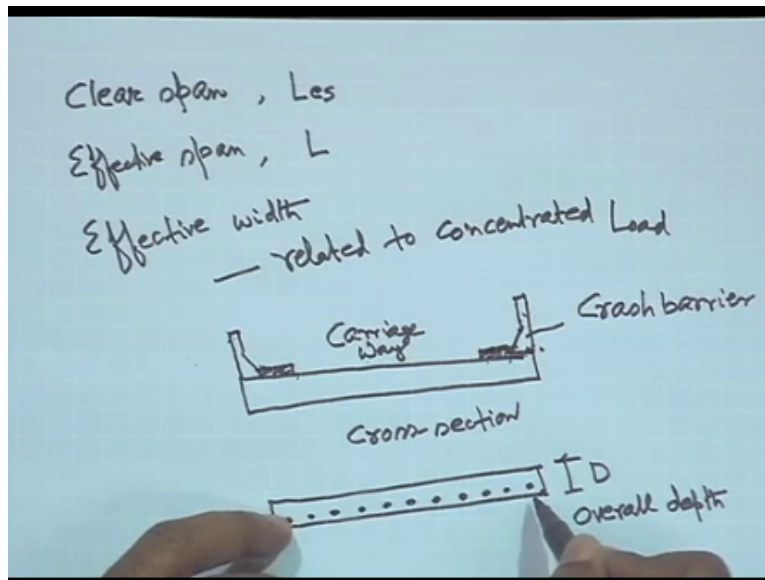 Clear span, Les
Effective span, L
Effective width
— related to concentrated Load
Crash barrier
Carriage
way
Cross-section
D
overall depth